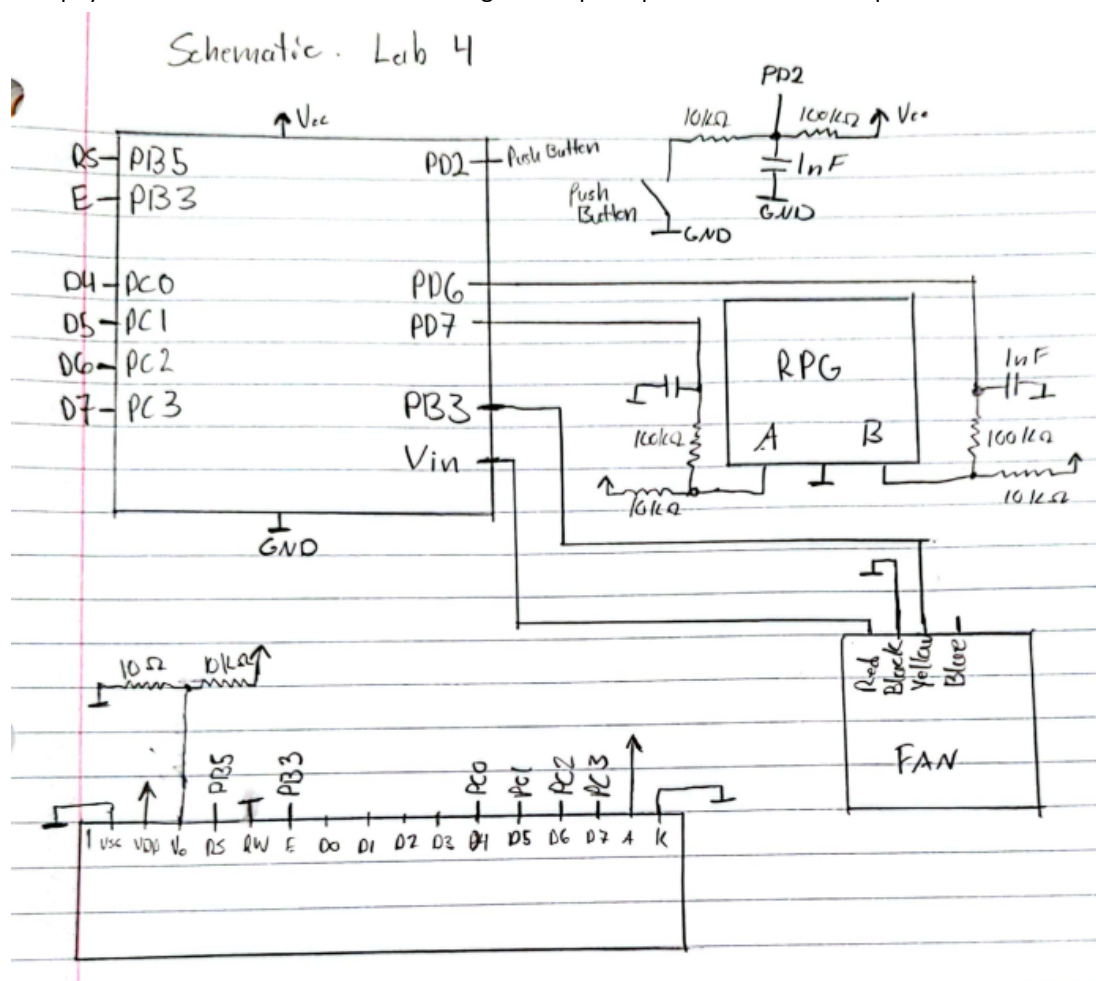 Schematic. Lab 4
Vcc
RS PB5
E PB3
D4 PC0
D5 PC1
D6 PC2
D7 PC3
PD2 Push Button
PD6
PD7
PB3
Vin
GND
PD2
10kΩ
100kΩ
Vcc
1nF
GND
Push
Button
GND
RPG
A B
100kΩ
10kΩ
1nF
100kΩ
10kΩ
Red
Black
Yellow
Blue
FAN
10Ω
10kΩ
PB5
PB3
PC0
PC1
PC2
PC3
1 VSC VDD Vo RS RW E D0 D1 D2 D3 D4 D5 D6 D7 A K